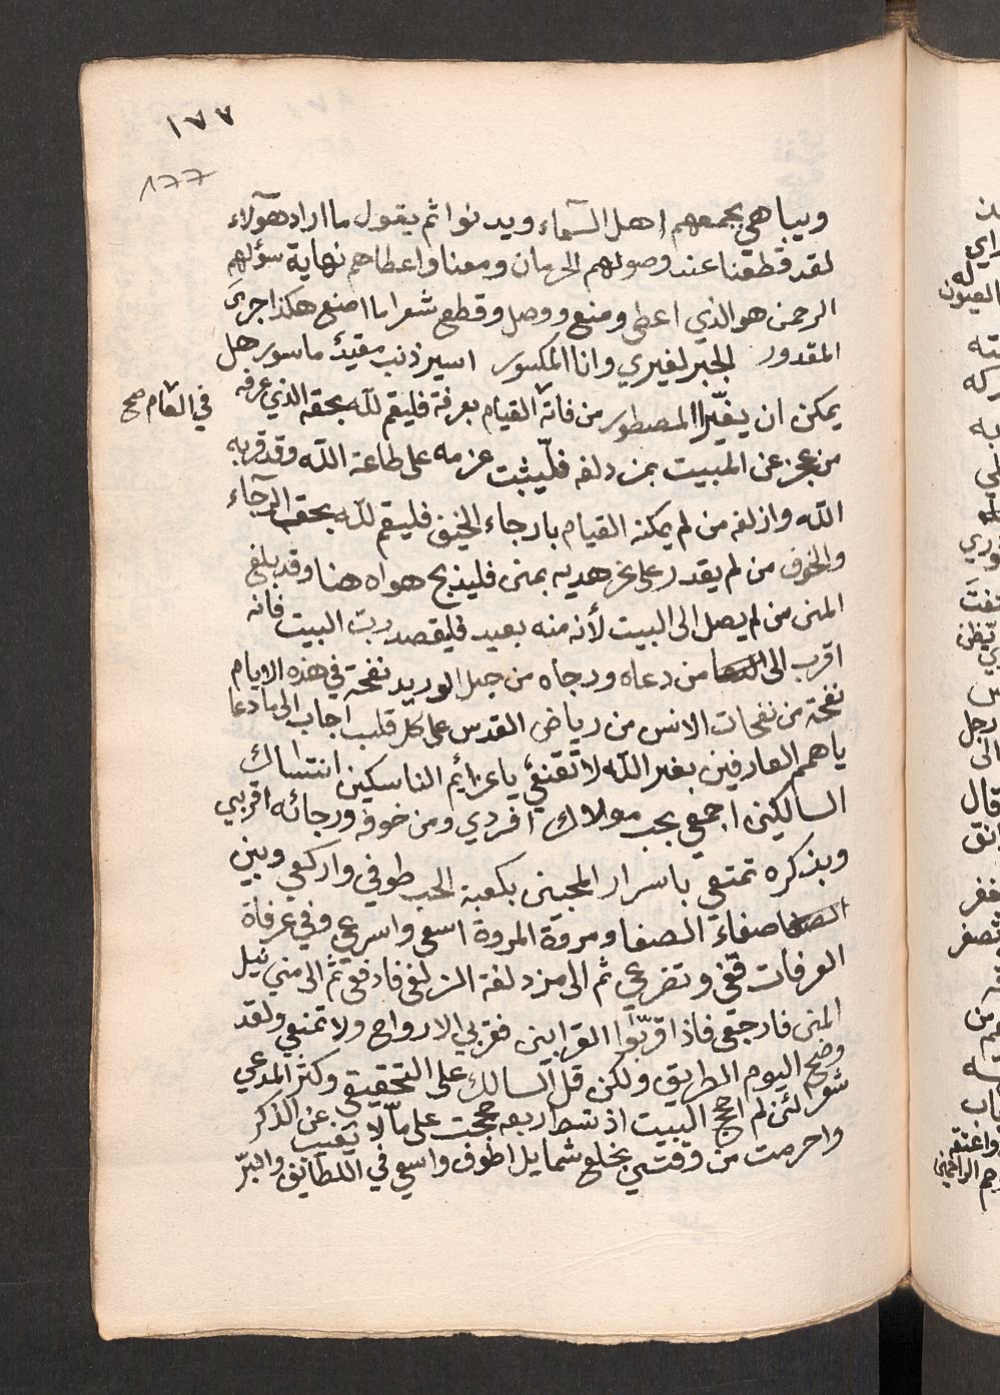 ١٧٧
177
ويباهي بجمعهم اهل السماء ويدنوا ثم يقول ما اراد هولاء
لقد قطعنا عند وصولهم الحرمان ومعنا واعطاهم نهاية سؤلهم
الرحمن هو الذي اعطى ومنع ووصل وقطع شعرا ما اصنع هكذا جرى
المقدور الجبر لغيري وانا المكسور اسير ذنب مقيد ماسور هل
يمكن ان يغيّر المسطور من فاته القيام بعرفة فليقم لله بحقه الذي عرفه
في العام صح
من عجز عن المبيت بمزدلفه فليثبت عزمه على طاعة الله وقد قربه
الله وازلفه من لم يمكنه القيام بارجاء الخيف فليقم لله بحق الرجاء
والخوف من لم يقدر على نحر هديه بمنى فليذبح هواه هنا وقد بلغ
المنى من لم يصل الى البيت لأنه منه بعيد فليقصد رب البيت فانه
اقرب الى من دعاه ورجاه من حبل الوريد نفحة في هذه الايام
نفحة من نفحات الانس من رياض القدس على كل قلب اجاب الى ما دعا
ياهمم العارفين بغير الله لا تقنعي ياعزايم الناسكين انتساك
السالكين اجمعي بحب مولاك افردي ومن خوفه ورجائه اقربي
وبذكره تمتعي باسرار المحبين بكعبة الحب طوفي واركعي وبين
صفاء الصفا ومروة المروة اسعي واسرعي وفي عرفاة
العرفات قفي وتضرعي ثم الى مزدلفة الزلفى فادفعي ثم الى مني نيل
المنى فارجعي فاذا قربّوا القرابين فقربي الارواح ولا تمنعي ولقد
وضح اليوم الطريق ولكن قل السالك على التحقيق وكثر المدعي
شعر لئن لم احج البيت اذ شط ربعه حججت على ما لا يغيب عن الذكر
واحرمت من وقتي بخلع شمايل اطوف واسعي في اللطائف والبرّ